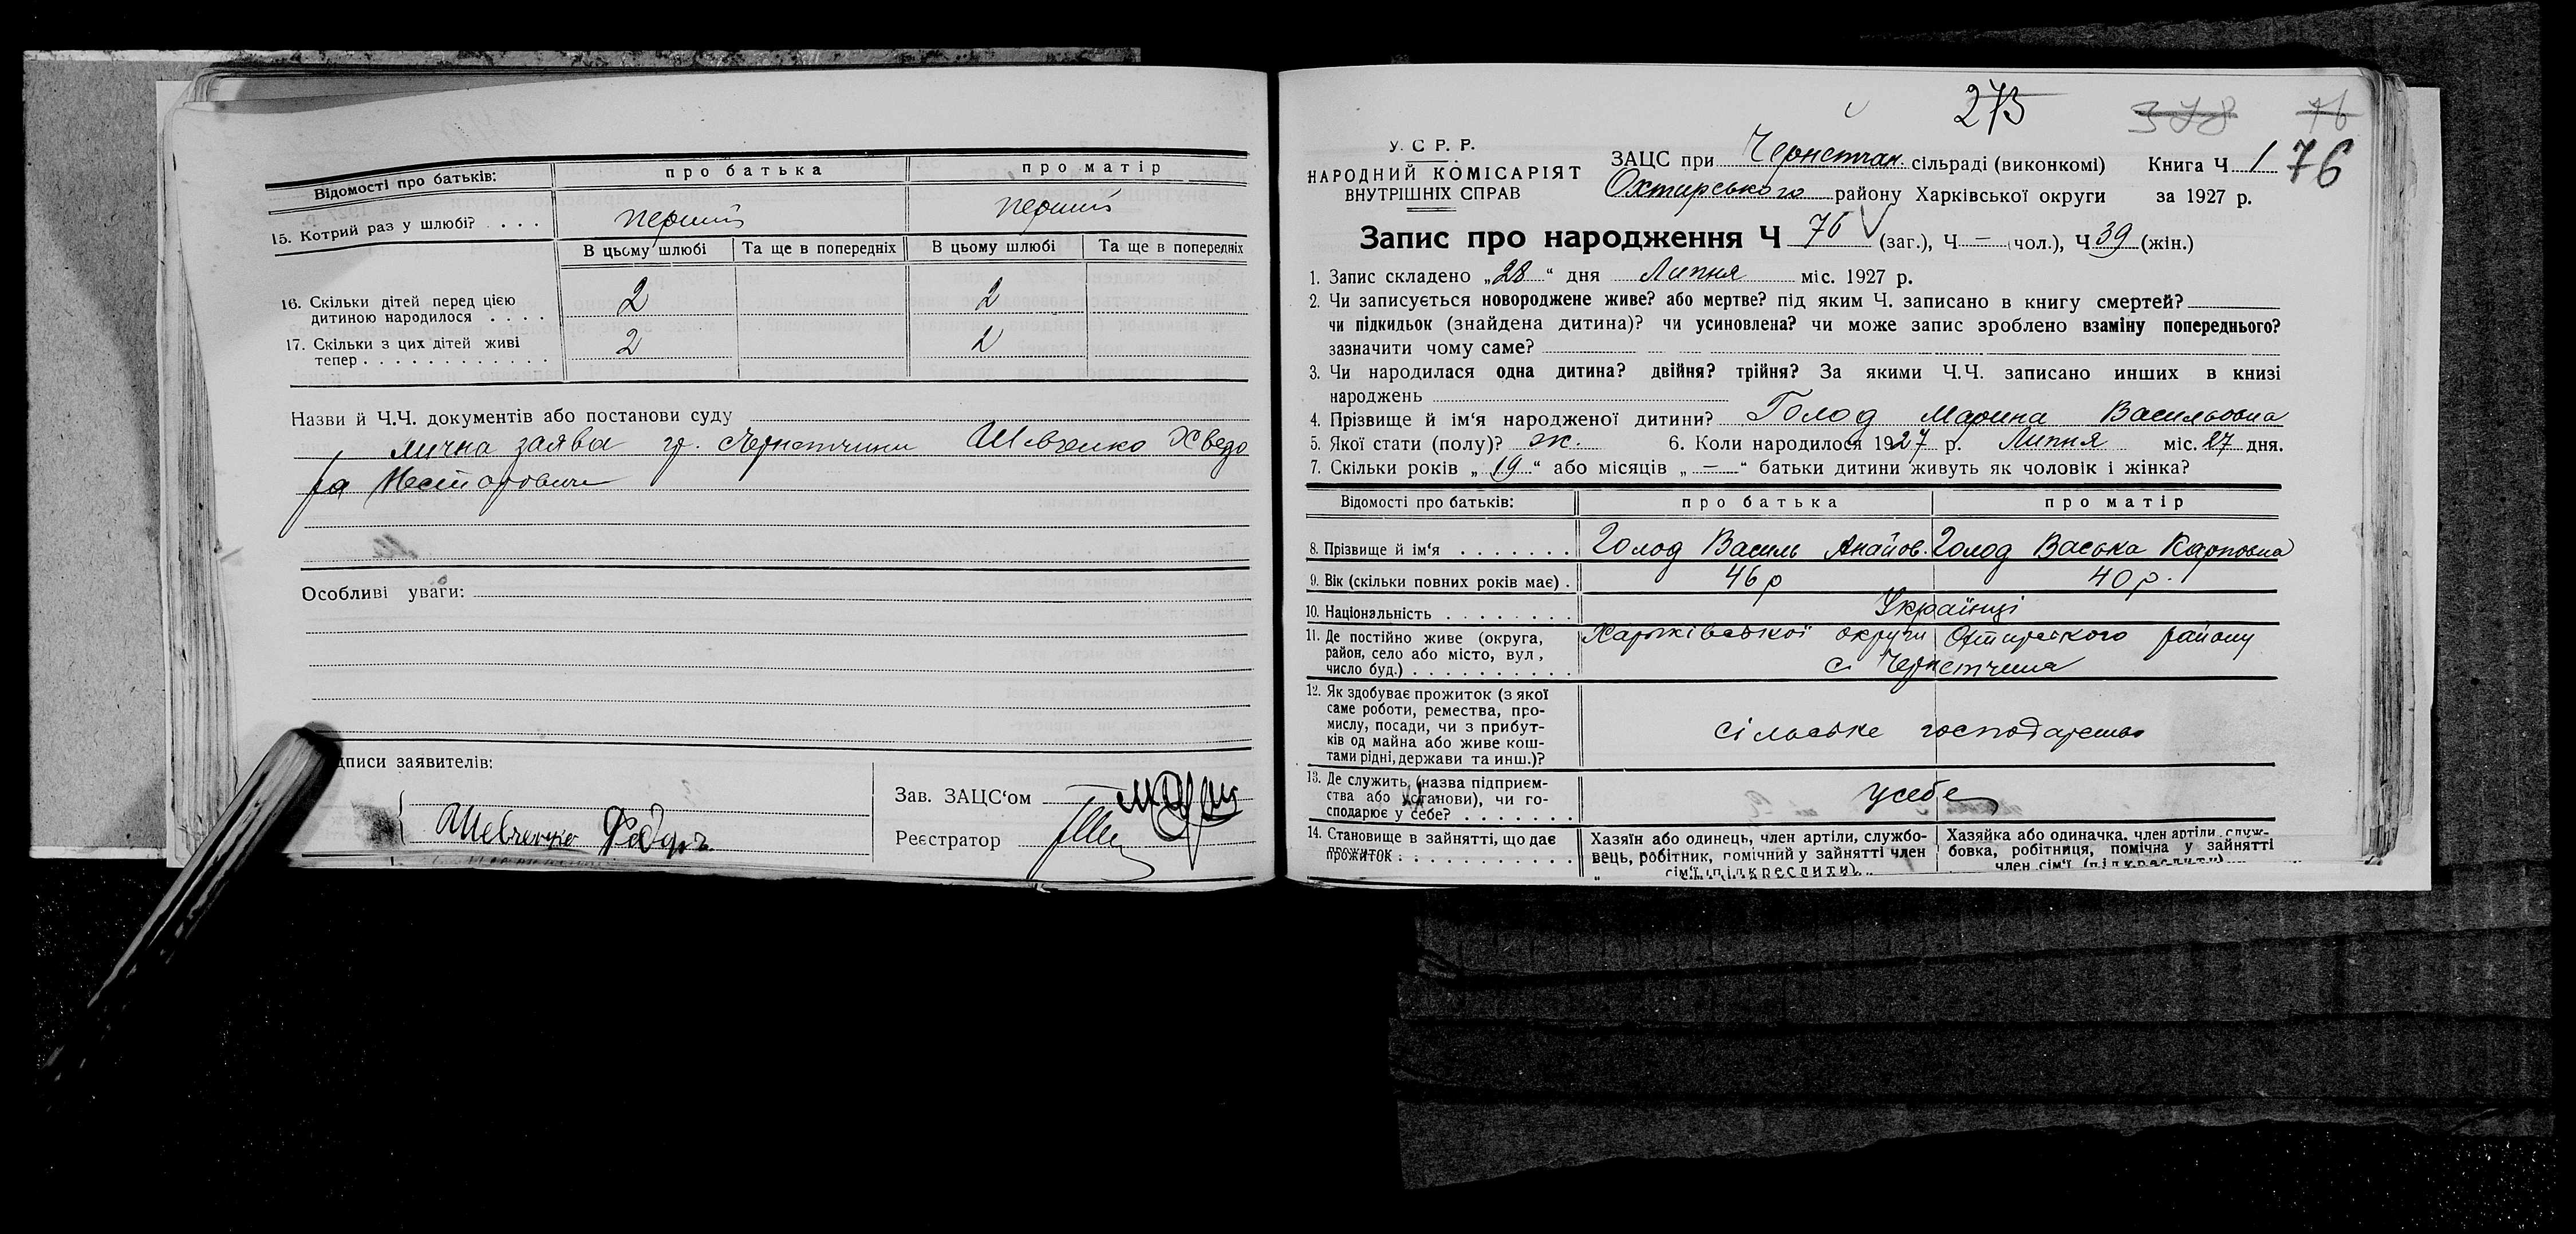 Відомості про батьків: про батька про матір
15. Котрий раз у шлюбі? . . . . перший перший
В цьому шлюбі Та ще в попередніх В цьому шлюбі Та ще в попередніх
16. Скільки дітей перед цією
дитиною народилося . . . . 2 2
17. Скільки з цих дітей живі
тепер . . . . . . . . . . . . . 2 2
Назви й Ч.Ч. документів або постанови суду
лична заява гр. Чернетчини Шевченко Хведо
ра Несторовича
Особливі уваги:
дписи заявителів:
Шевченко Федоръ
Зав. ЗАЦС‘ом
Реєстратор
273 378 76
У. С Р. Р.
НАРОДНИЙ КОМІСАРІЯТ
ВНУТРІШНІХ СПРАВ
ЗАЦС при Чернетчан. сільраді (виконкомі) Книга Ч 1 76
Охтирського району Харківської округи за 1927 р.
Запис про народження Ч 76 (заг.), Ч — (чол.), Ч 39 (жін.)
1. Запис складено „28“ дня Липня міс. 1927 р.
2. Чи записується новороджене живе? або мертве? під яким Ч. записано в книгу смертей?
чи підкидьок (знайдена дитина)? чи усиновлена? чи може запис зроблено взаміну попереднього?
зазначити чому саме?
3. Чи народилася одна дитина? двійня? трійня? За якими Ч.Ч. записано инших в книзі
народжень
4. Прізвище й ім‘я народженої дитини? Голод Марина Васильовна
5. Якої стати (полу)? ж. 6. Коли народилося 1927 р. Липня міс. 27 дня.
7. Скільки років „19“ або місяців „—“ батьки дитини живуть як чоловік і жінка?
Відомості про батьків: про батька про матір
8. Прізвище й ім‘я . . . . . . . Голод Василь Голод Васька Карповна
9. Вік (скільки повних років має) . 46 р 40 р.
10. Національність . . . . . . . . Українці
11. Де постійно живе (округа,
район, село або місто, вул,
число буд.) . . . . . . . . . .
Харьківської округи Охтирского району
с. Чернетчина
12. Як здобуває прожиток (з якої
саме роботи, ремества, про-
мислу, посади, чи з прибут-
ків од майна або живе кош-
тами рідні, держави та инш.)?
сільське господарство
13. Де служить, (назва підприєм-
ства або установи), чи го-
сподарює у себе? . . . . . . .
усебе
14. Становище в зайнятті, що дає
прожиток . . . . . . . . . . .
Хазяїн або одинець, член артіли, службо-
вець, робітник, помічний у зайнятті член
сім‘ї (підкреслити)
Хазяйка або одиначка, член артіли, служ-
бовка, робітниця, помічна у зайнятті
член сім‘ї (підкреслити)